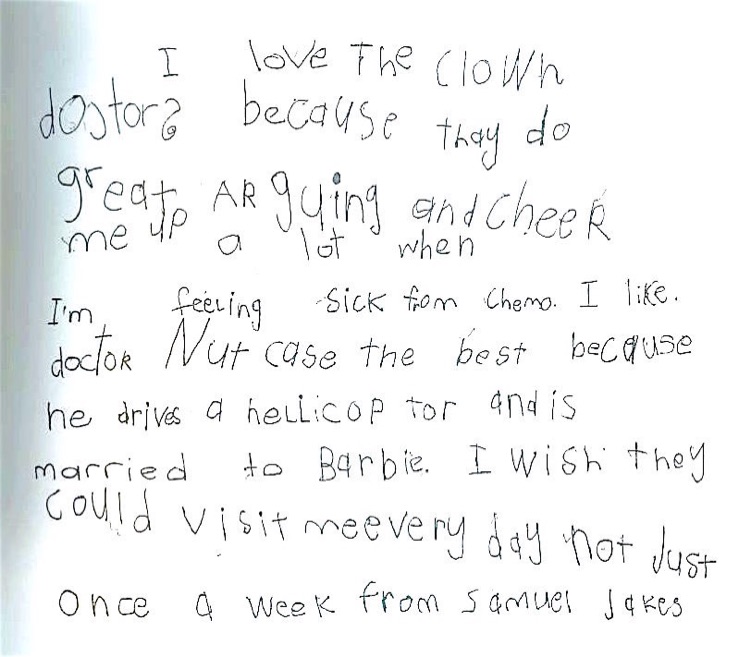 I love The Clown
dogtors because thay do
great ARguying and cheeR
me up a lot when
I'm feeling sick from chemo. I like.
doctoR Nut case the best because
he drives a hellicop tor and is
married to Barbie. I wish they
could visit meevery day not Just
once a week from samuel Jakes